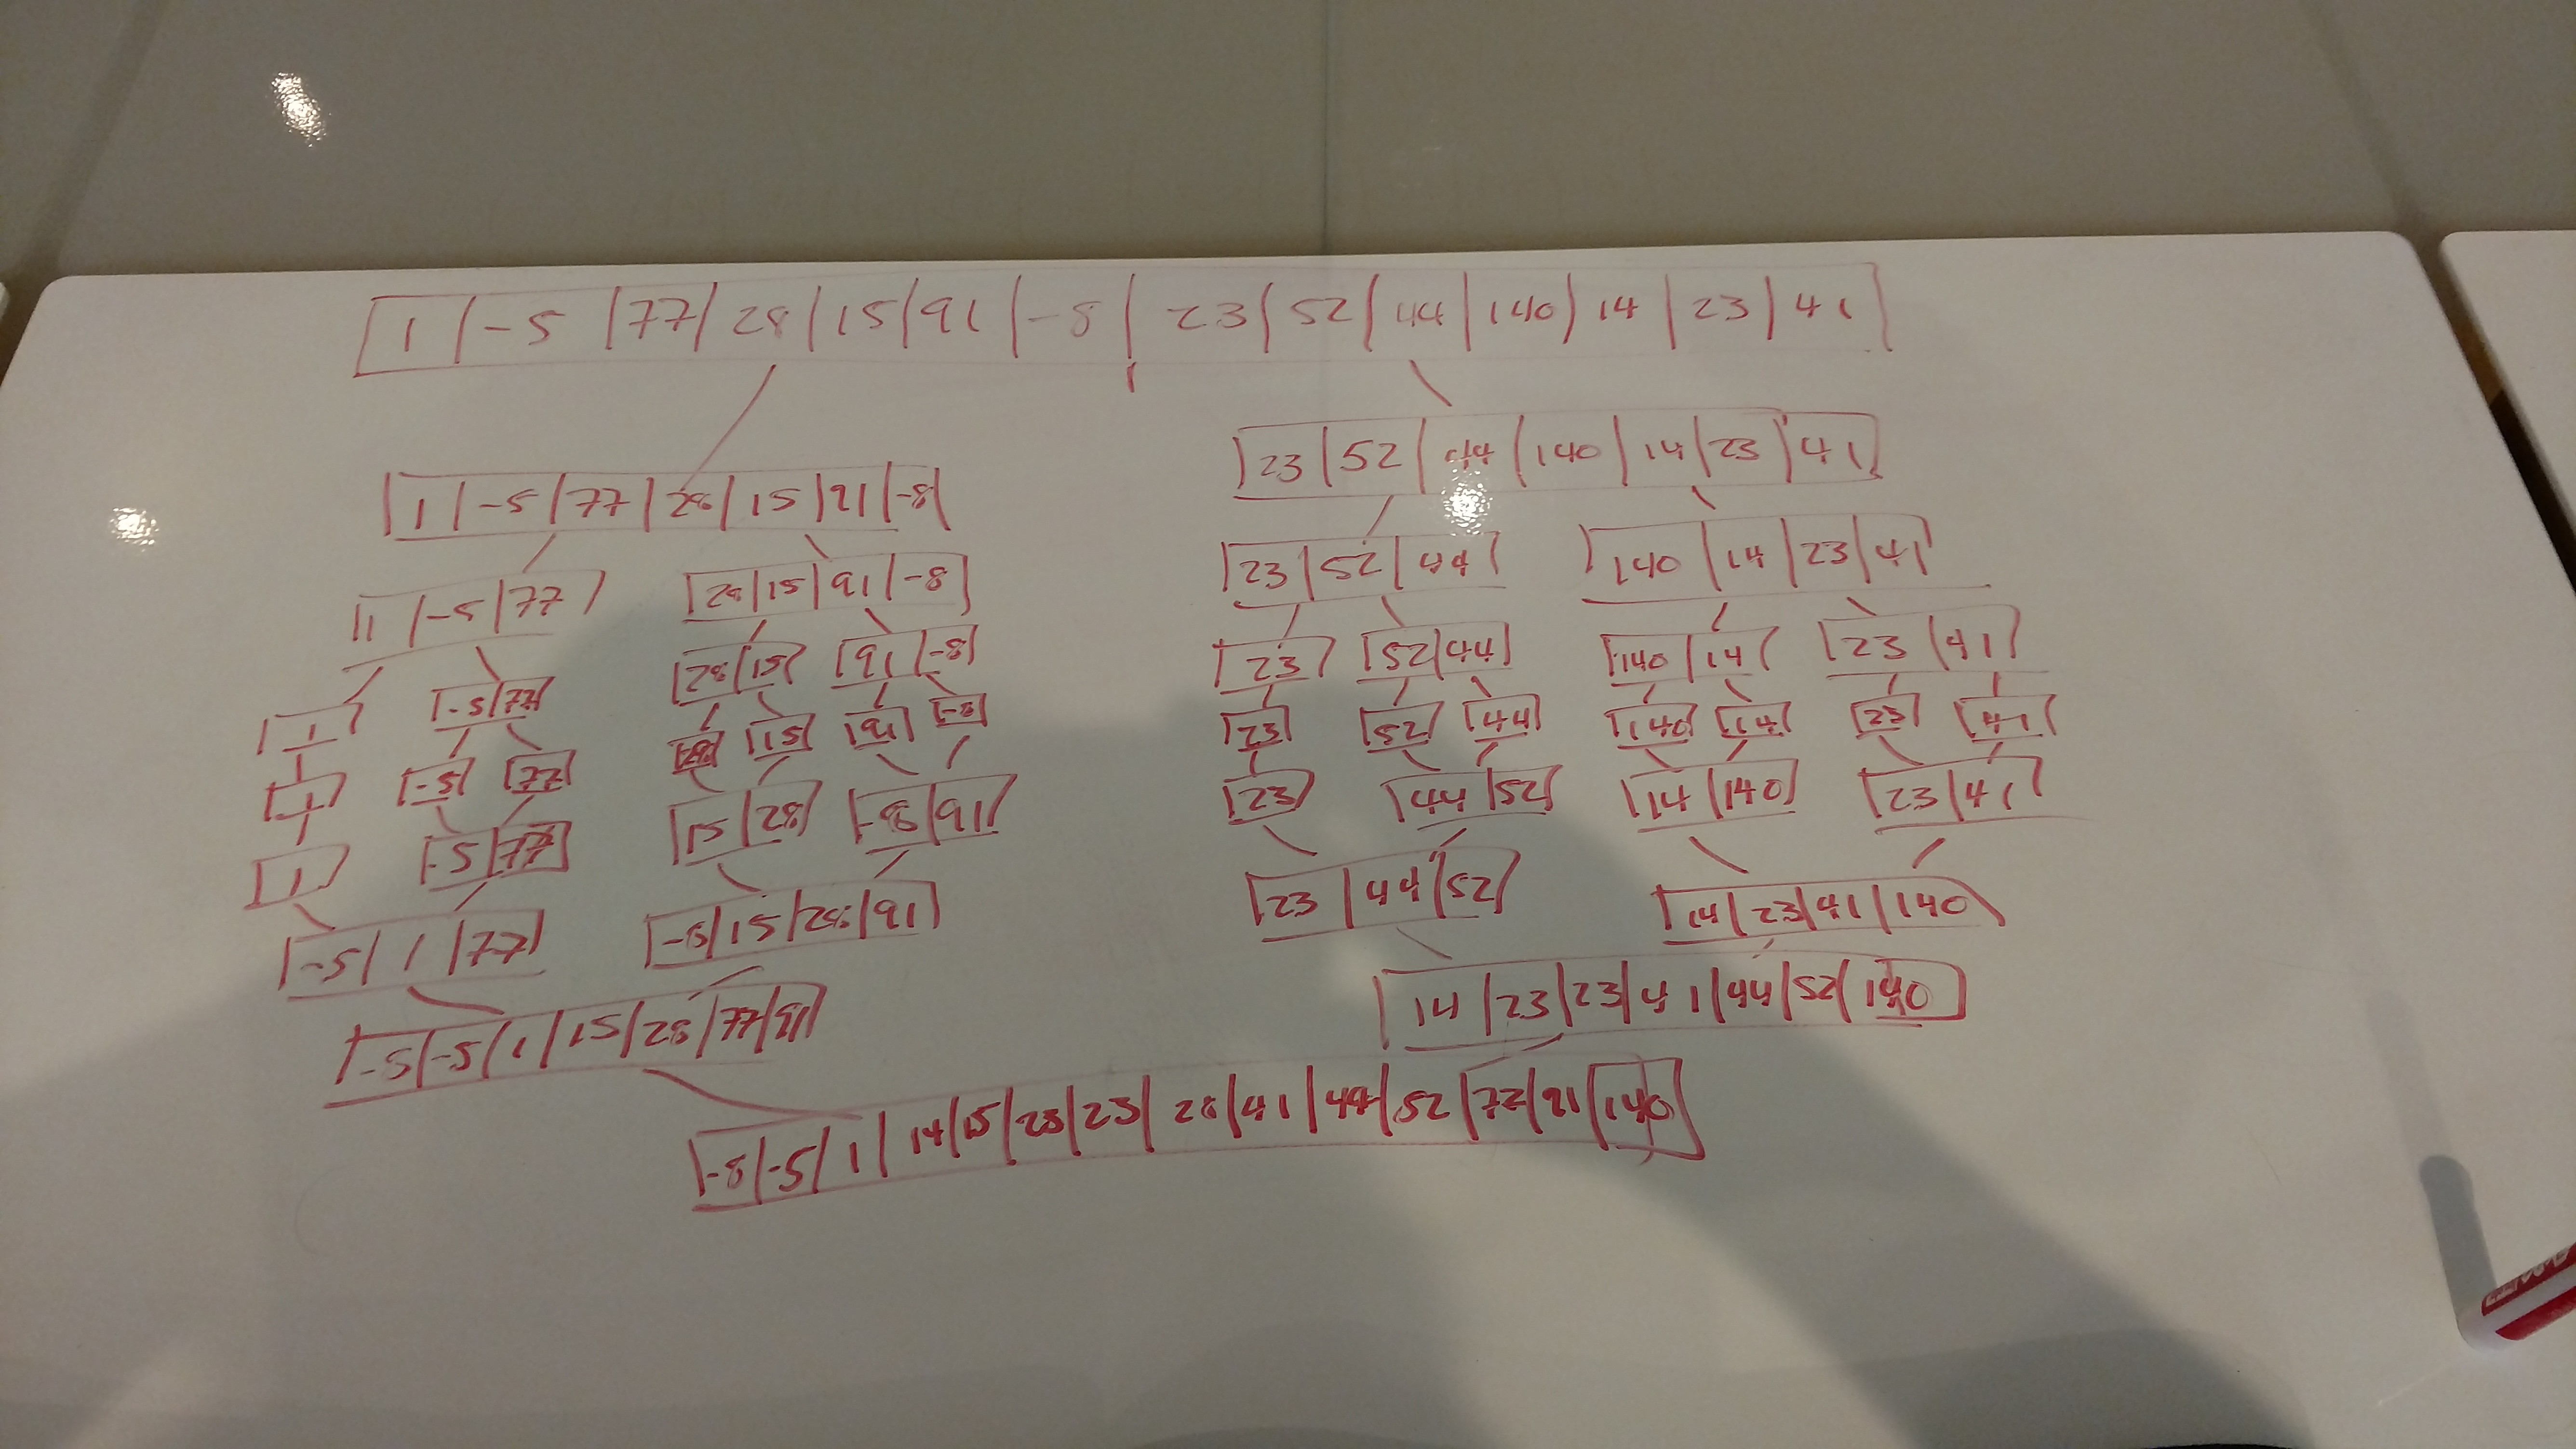 1 | -5 | 77 | 28 | 15 | 91 | -8 | 23 | 52 | 44 | 140 | 14 | 23 | 41
1 | -5 | 77 | 28 | 15 | 91 | -8
23 | 52 | 44 | 140 | 14 | 23 | 41
1 | -5 | 77
28 | 15 | 91 | -8
23 | 52 | 44
140 | 14 | 23 | 41
1
-5 | 77
28 | 15
91 | -8
23
52 | 44
140 | 14
23 | 41
1
-5
77
28
15
91
-8
23
52
44
140
14
23
41
1
-5 | 77
15 | 28
-8 | 91
23
44 | 52
14 | 140
23 | 41
-5 | 1 | 77
-8 | 15 | 28 | 91
23 | 44 | 52
14 | 23 | 41 | 140
-5 | -5 | 1 | 15 | 28 | 77 | 91
14 | 23 | 23 | 41 | 44 | 52 | 140
-8 | -5 | 1 | 14 | 15 | 23 | 23 | 28 | 41 | 44 | 52 | 77 | 91 | 140